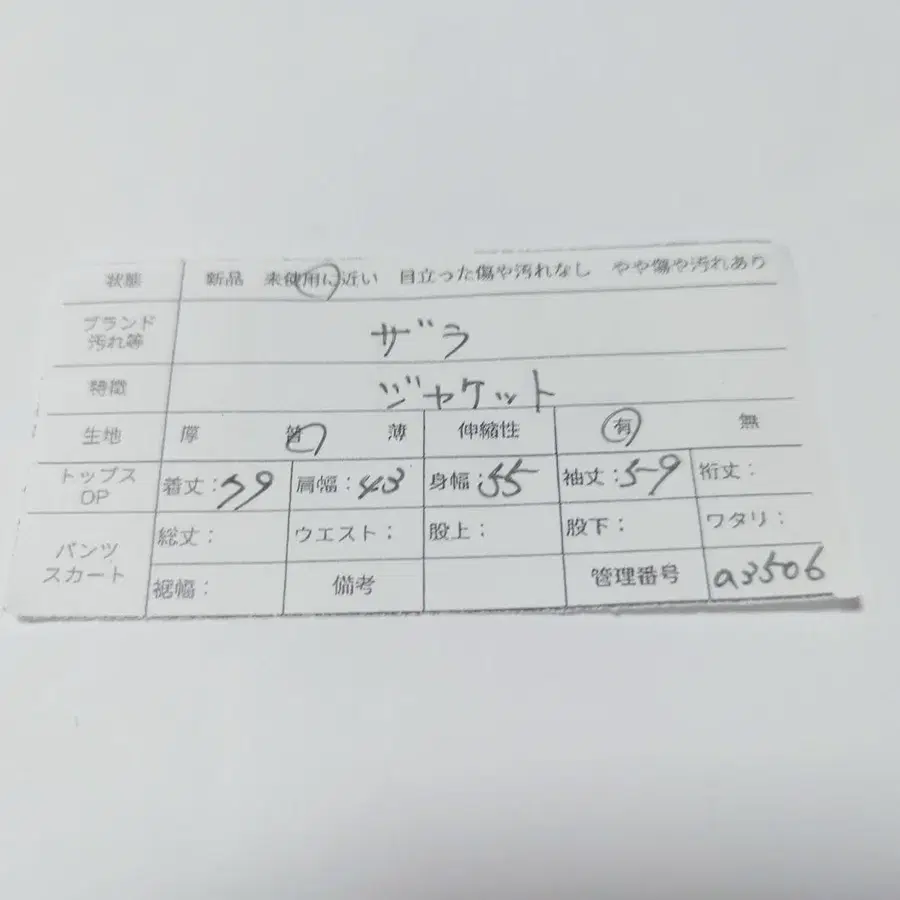 状態 新品 未使用に近い 目立った傷や汚れなし やや傷や汚れあり
ブランド
汚れ等
ザラ
特徴 ジャケット
生地 厚 普 薄 伸縮性 有 無
トップス
OP
着丈: 肩幅:43 身幅:55 袖丈:59 裄丈:
パンツ
スカート
総丈: ウエスト: 股上: 股下: ワタリ:
裾幅: 備考 管理番号 a3506